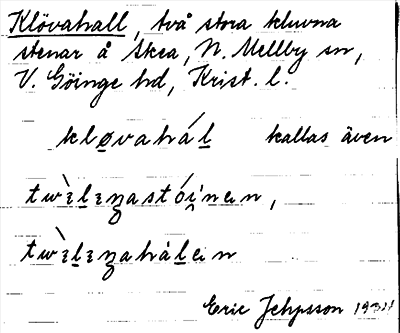 Klövahall, två stora kluvna
stenar å Skea, N. Mellby sn,
V. Göinge hd, Krist. l.
kløvahál kallas även
twɛ̀lɛnastóínen,
twɛ̀lɛnahálen
Eric Jehpsson 1931